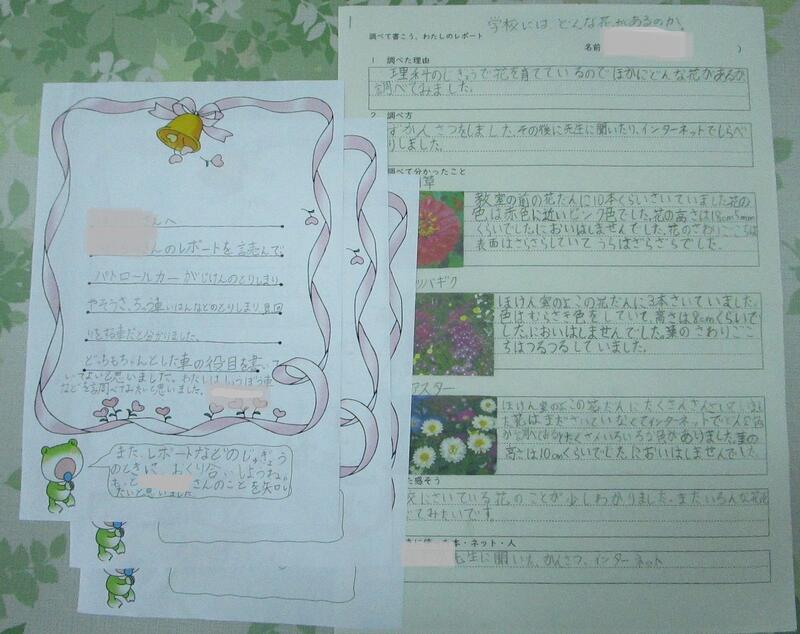 さんへ
さんのレポートを読んで
パトロールカーがじけんのとりしまり
やそうさ、ちゅう車いはんなどのとりしまり見回
りをする車だと分かりました。
どっちもちゃんとした車の役目を書いて
いてよいと思いました。わたしはしょうぼう車
などを調べてみたいと思いました。
また、レポートなどのじゅぎょう
のときに、おくり合いしようね。
もっと さんのことを知り
たいと思いました
学校にはどんな花があるのか。
調べて書こう、わたしのレポート
名前 )
1 調べた理由
理科のじゅぎょうで花を育てているのでほかにどんな花があるか
調べてみました。
2 調べ方
かんさつをしました。その後に先生に聞いたり、インターネットでしらべ
りしました。
調べて分かったこと
草
教室の前の花だんに10本くらいさいていました。花の
色は赤色に近いピンク色でした。花の高さは18cm5mm
くらいでした。においはしませんでした。花のさわりごこちは
表面はさらさらしていてうらはざらざらでした。
バギク
ほけん室のよこの花だんに3本さいていました。
色はむらさき色をしていて、高さは8cmくらいで
した。においはしませんでした。葉のさわりごこ
ちはつるつるしていました。
アスター
ほけん室のよこの花だんにたくさん
花はまだ インターネットで
たくさんいろいろな色がありました。葉の
高さは10cmくらいでした。においはしませんでした。
た感そう
校にさいている花のことが少しわかりました。またいろんな花を
てみたいです。
本・ネット・人
先生に聞いた、かんさつ、インターネット